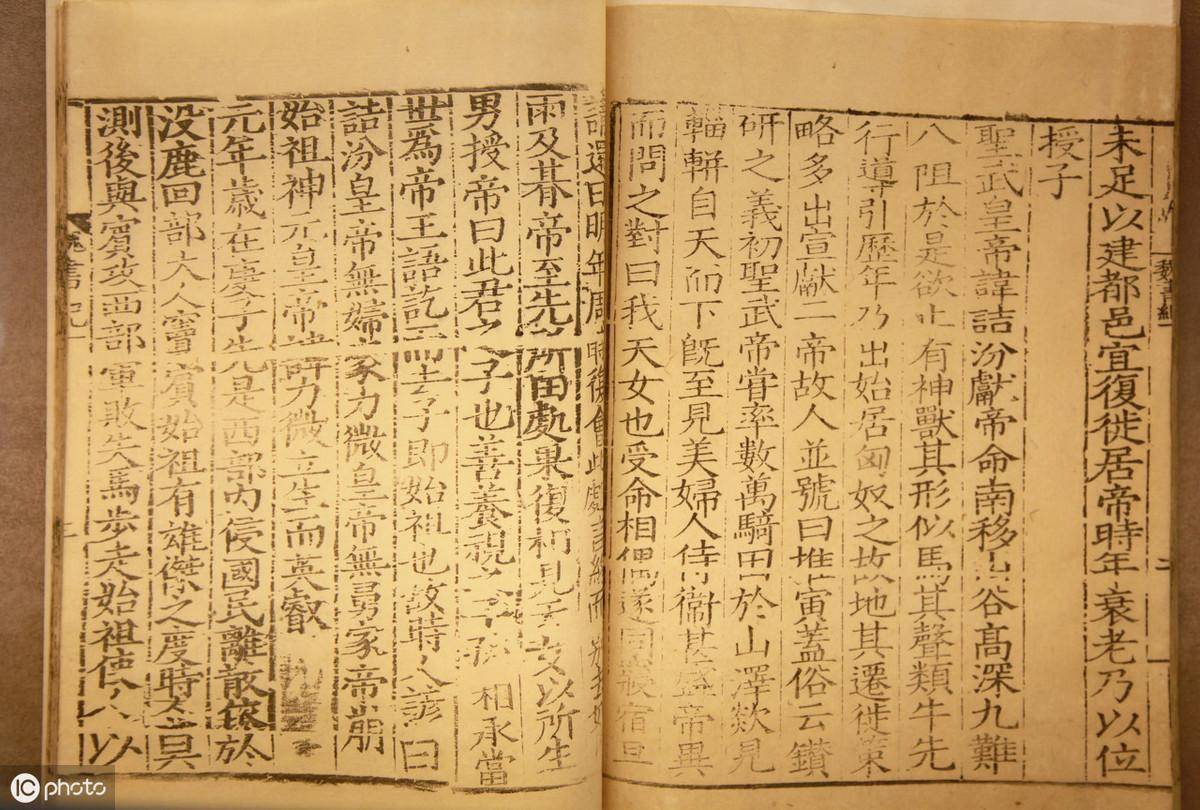 未足以建都邑宜復徙居帝時年衰老乃以位
授子
聖武皇帝諱詰汾獻帝命南移山谷高深九難
八阻於是欲止有神獸其形似馬其聲類牛先
行導引歷年乃出始居匈奴之故地其遷徙策
略多出宣獻二帝故人並號曰推寅蓋俗云鑽
研之義初聖武帝甞率數萬騎田於山澤欻見
輜軿自天而下旣至見美婦人侍衞甚盛帝異
而問之對曰我天女也受命相偶遂同寢宿旦
請還曰明年周時復會此處言終而別去如
雨及朞帝至先所田處果復相見天女以所生
男授帝曰此君之子也善養視之子孫相承當
世爲帝王語訖而去子即始祖也故時人諺曰
詰汾皇帝無婦家力微皇帝無舅家帝崩
始祖神元皇帝諱力微立生而英叡
元年歲在庚子先是西部內侵國民離散依於
没鹿回部大人竇賓始祖有雄傑之度時人莫
測後與賓攻西部軍敗失馬步走始祖使人以
魏書紀一
二
魏書紀一
ICphoto